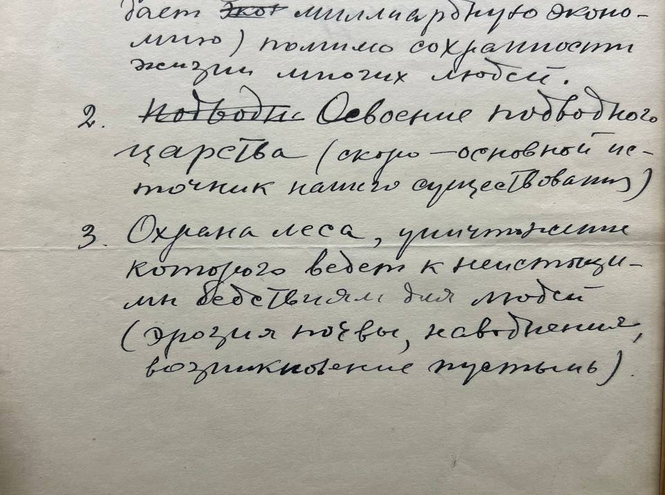 дает эко миллиардную эконо-
мию) помимо сохранности
жизни многих людей.
2. Подводн Освоение подводного
царства (скоро – основной ис-
точник нашего существования)
3. Охрана леса, уничтожение
которого ведет к неисчощи-
мы бедствиям для людей
(эрозия почвы, наводнения,
возникновение пустынь).